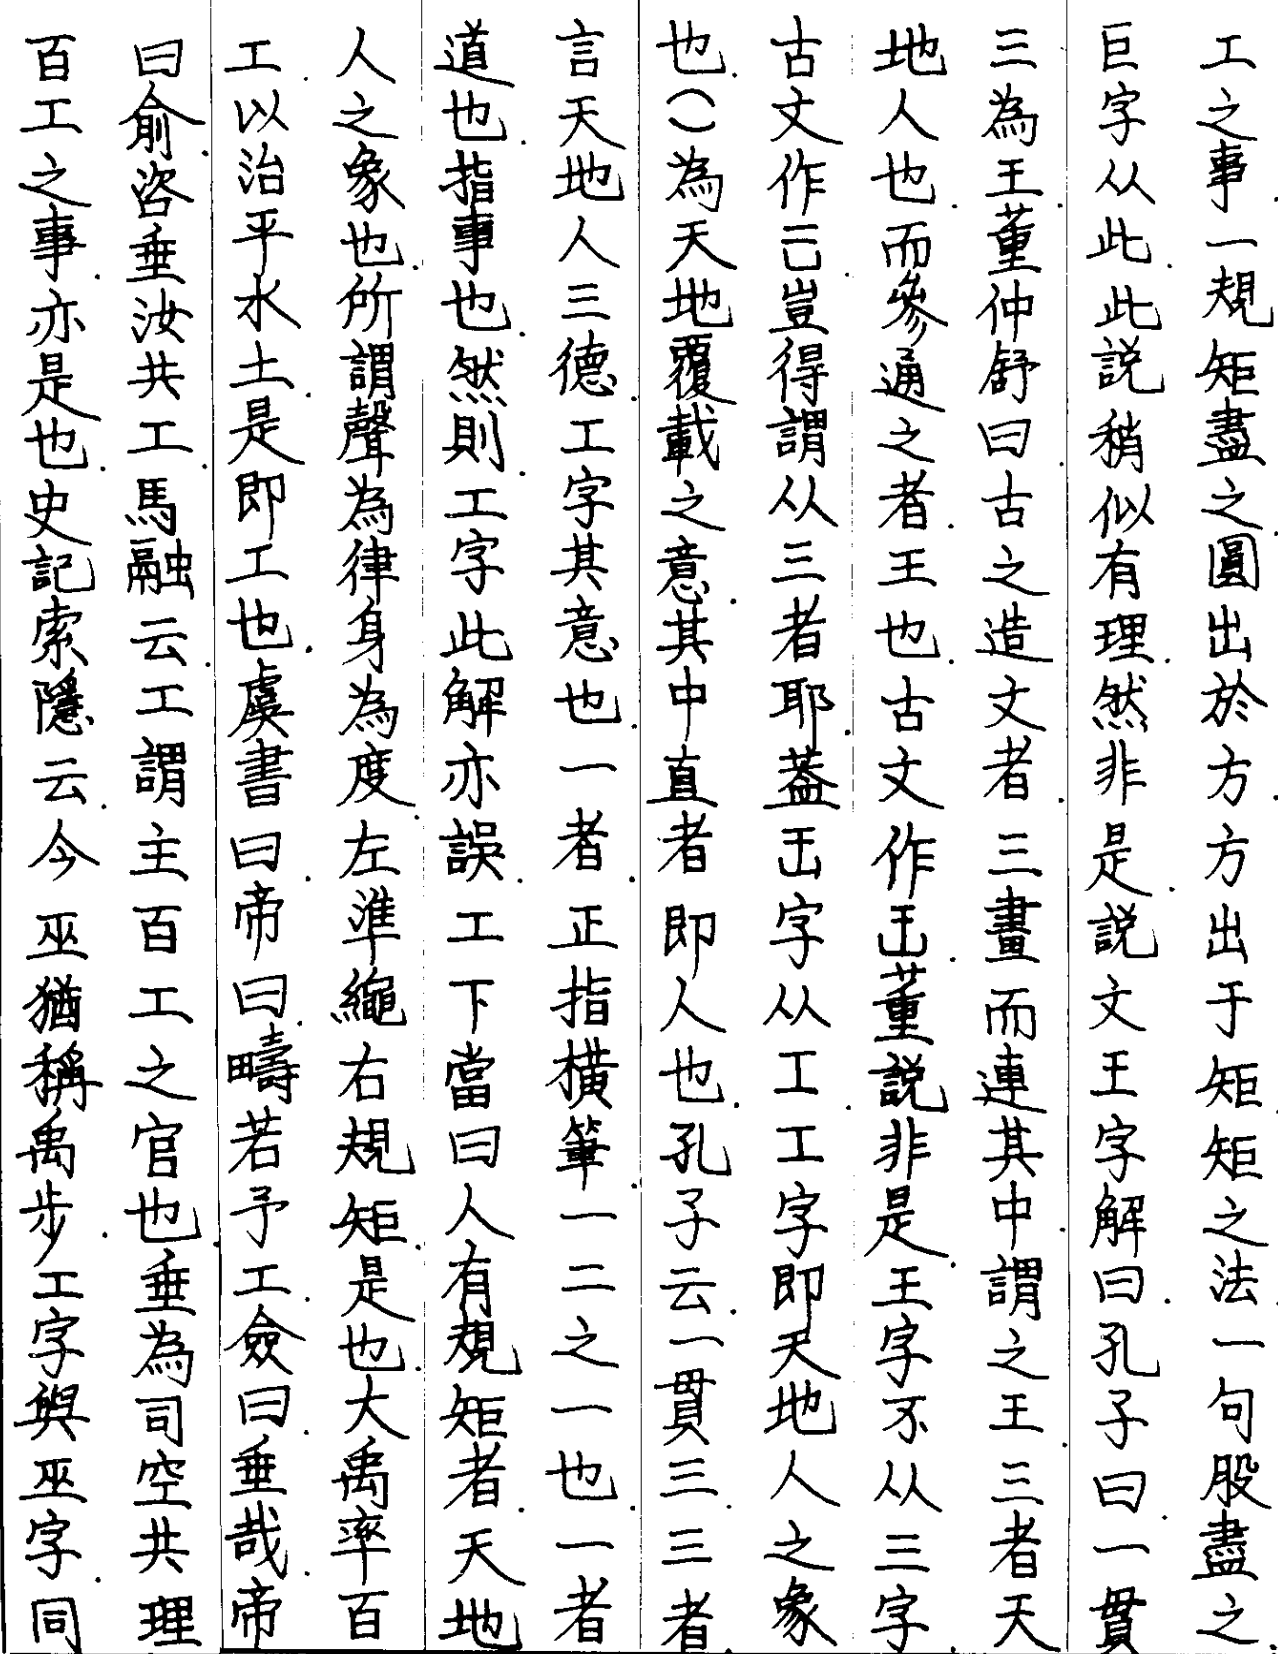 工之事一規矩盡之圓出於方方出于矩矩之法一句股盡之
巨字从此此説稍似有理然非是説文王字解曰孔子曰一貫
三為王董仲舒曰古之造文者三畫而連其中謂之王三者天
地人也而參通之者王也古文作𠙻董説非是王字不从三字
古文作亖豈得謂从三者耶葢𠙻字从工工字即天地人之象
也()為天地覆載之意其中直者即人也孔子云一貫三三者
言天地人三德工字其意也一者正指横筆一二之一也一者
道也指事也然則工字此解亦誤工下當曰人有規矩者天地
人之象也所謂聲為律身為度左準繩右規矩是也大禹率百
工以治平水土是即工也虞書曰帝曰疇若予工僉曰垂哉帝
曰俞咨垂汝共工馬融云工謂主百工之官也垂為司空共理
百工之事亦是也史記索隱云今巫猶稱禹步工字與巫字同